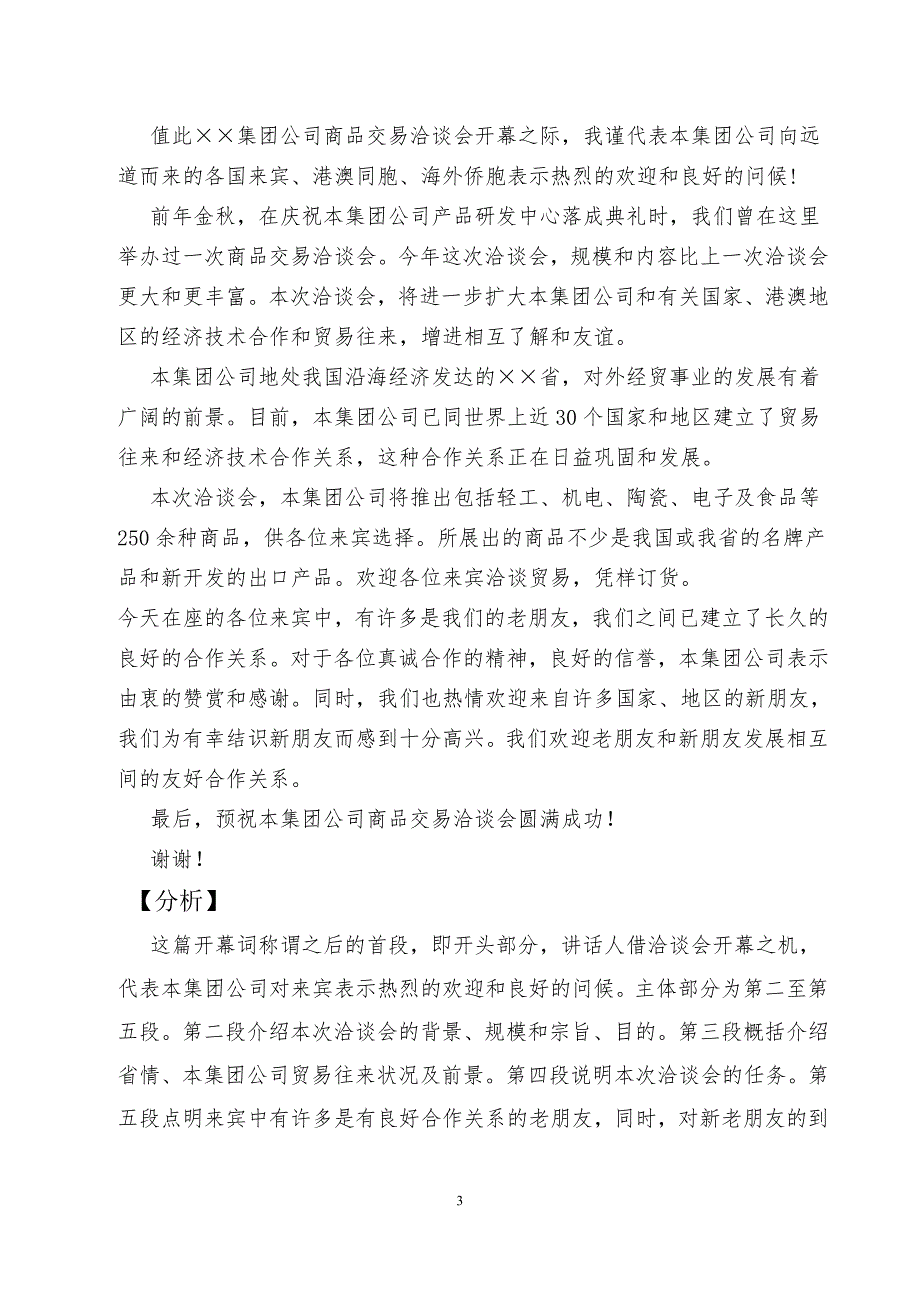 值此××集团公司商品交易洽谈会开幕之际，我谨代表本集团公司向远
道而来的各国来宾、港澳同胞、海外侨胞表示热烈的欢迎和良好的问候！
前年金秋，在庆祝本集团公司产品研发中心落成典礼时，我们曾在这里
举办过一次商品交易洽谈会。今年这次洽谈会，规模和内容比上一次洽谈会
更大和更丰富。本次洽谈会，将进一步扩大本集团公司和有关国家、港澳地
区的经济技术合作和贸易往来，增进相互了解和友谊。
本集团公司地处我国沿海经济发达的××省，对外经贸事业的发展有着
广阔的前景。目前，本集团公司已同世界上近 30 个国家和地区建立了贸易
往来和经济技术合作关系，这种合作关系正在日益巩固和发展。
本次洽谈会，本集团公司将推出包括轻工、机电、陶瓷、电子及食品等
250 余种商品，供各位来宾选择。所展出的商品不少是我国或我省的名牌产
品和新开发的出口产品。欢迎各位来宾洽谈贸易，凭样订货。
今天在座的各位来宾中，有许多是我们的老朋友，我们之间已建立了长久的
良好的合作关系。对于各位真诚合作的精神，良好的信誉，本集团公司表示
由衷的赞赏和感谢。同时，我们也热情欢迎来自许多国家、地区的新朋友，
我们为有幸结识新朋友而感到十分高兴。我们欢迎老朋友和新朋友发展相互
间的友好合作关系。
最后，预祝本集团公司商品交易洽谈会圆满成功！
谢谢！
【分析】
这篇开幕词称谓之后的首段，即开头部分，讲话人借洽谈会开幕之机，
代表本集团公司对来宾表示热烈的欢迎和良好的问候。主体部分为第二至第
五段。第二段介绍本次洽谈会的背景、规模和宗旨、目的。第三段概括介绍
省情、本集团公司贸易往来状况及前景。第四段说明本次洽谈会的任务。第
五段点明来宾中有许多是有良好合作关系的老朋友，同时，对新老朋友的到
3